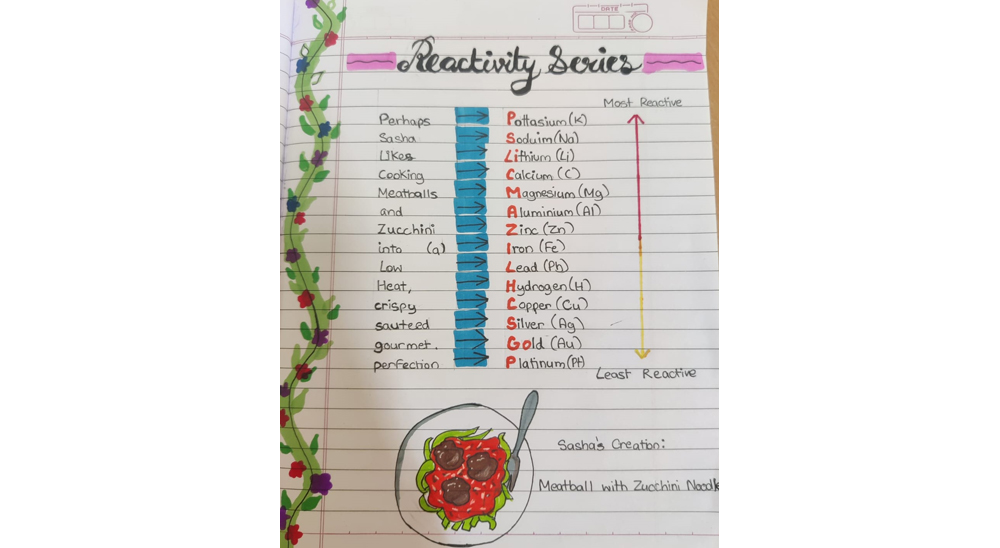 DATE
Reactivity Series
Most Reactive
Perhaps → Pottasium (K)
Sasha → Soduim (Na)
Likes → Lithium (Li)
Cooking → Calcium (C)
Meatballs → Magnesium (Mg)
and → Aluminium (Al)
Zucchini → Zinc (Zn)
into (a) → Iron (Fe)
Low → Lead (Pb)
Heat, → Hydrogen (H)
crispy → Copper (Cu)
sauteed → Silver (Ag)
gourmet. → Gold (Au)
perfection → Platinum (Pt)
Least Reactive
Sasha's Creation:
Meatball with Zucchini Noodle